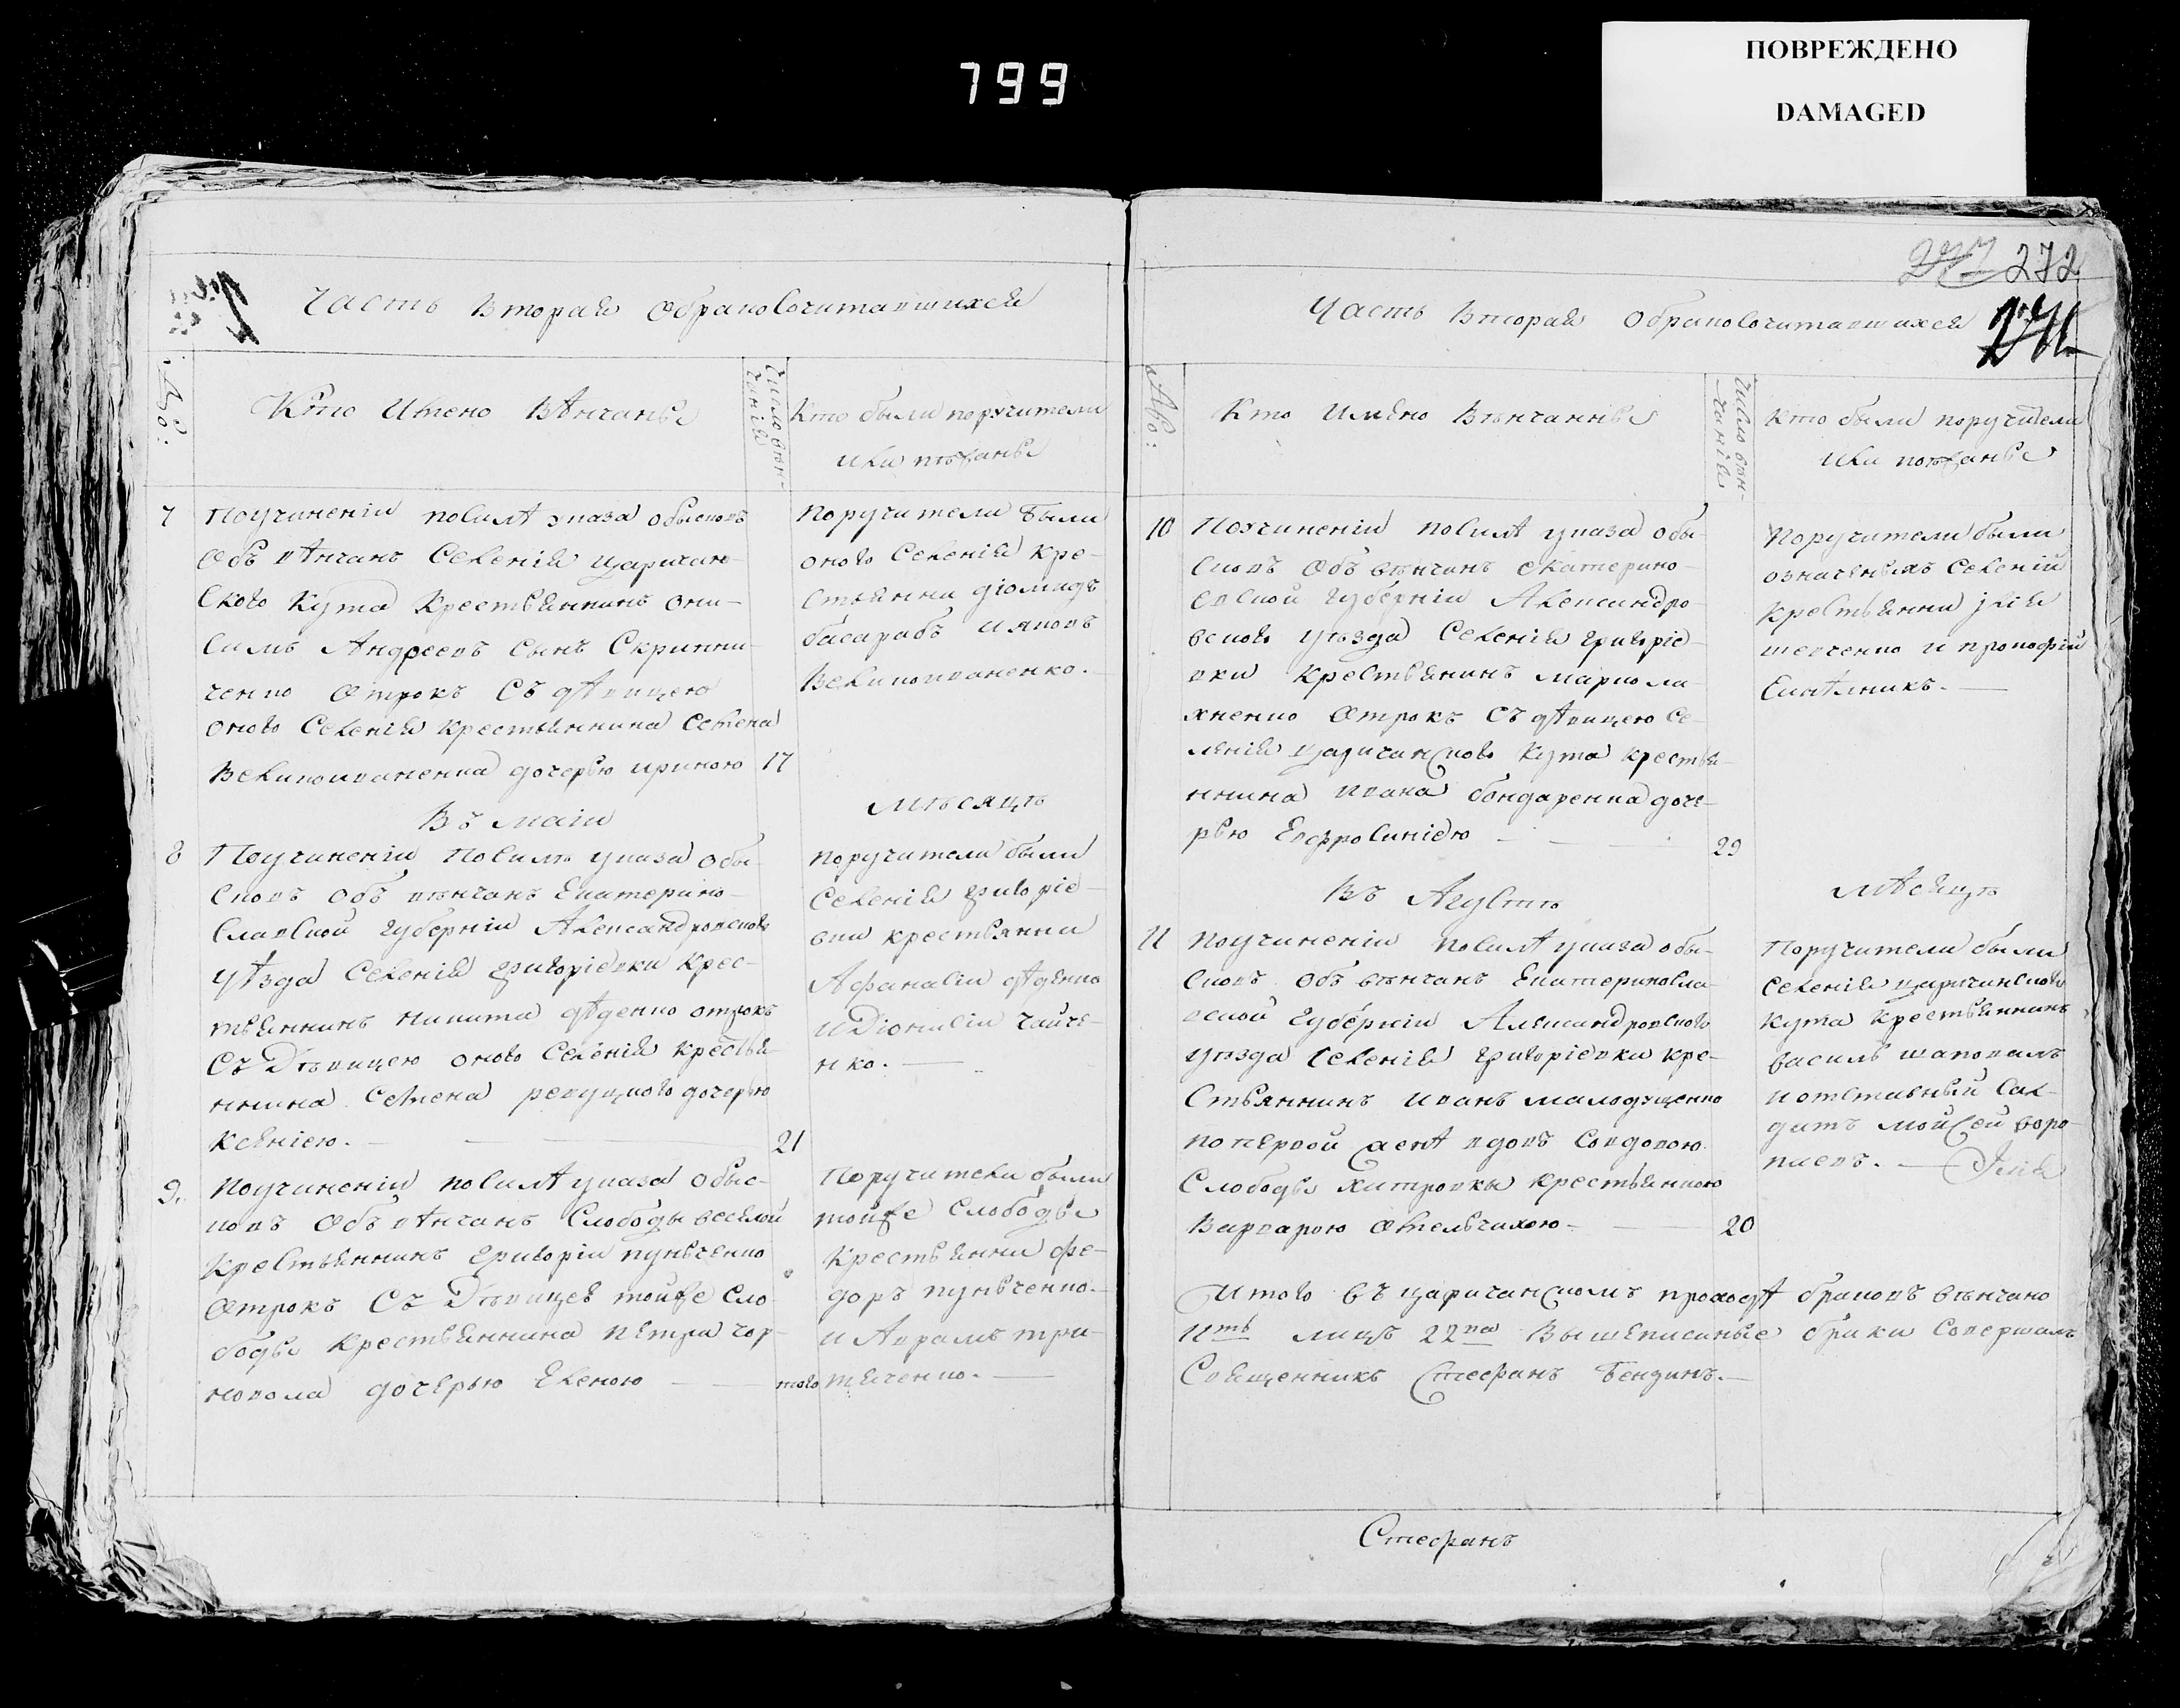 799
ПОВРЕЖДЕНО
DAMAGED
Часть вторая о бракосочитавшихся
№:
Кто имено вѣнчаны
Число вен-
чанія
Кто были поручители
или поезжаные
7 По учиненіи по силѣ указа обысковъ
обвѣнчанъ селенія Царичан-
ского Кута крестьяннинъ Они-
симъ Андреевъ сынъ Скрипни-
ченко отрокъ съ дѣвицею
оного селенія крестьяннина Семена
Великоиваненка дочерью Ириною 17
Поручители были
оного селенія кре-
стьянни Діомидъ
Басарабъ и Яковъ
Великоиваненко.
Въ маіи месяцѣ
8 По учиненіи по силѣ указа обы-
сковъ обвѣнчанъ Екатерино-
славской губерніи Александровского
уѣзда селенія Григоріевки крес-
тьяннинъ Никита Дѣденко отрокъ
съ дѣвицею оного селенія крестья-
ннина Семена Ревуцкого дочерью
Ксеніею. 21
Поручители были
селенія Григоріе-
вки крестьянни
Афанасіи Дѣденко
и Діонисіи Чайче-
нко.
9. По учиненіи по силѣ указа обыс-
ковъ обвѣнчанъ слободы Веселой
крестьяннинъ Григоріи Пунченко
отрокъ съ дѣвицею тойже сло-
боды крестьяннина Петра Чор-
новола дочерью Еленою того
Поручители были
тойже слободы
крестьянни Фе-
доръ Пунченко
и Аврамъ Три-
тяченко.
272
271
Часть вторая о бракосочитавшихся
№:
Кто имено вѣнчанны
Число вѣн-
чанія
Кто были поручители
или поезжаны
10 По учиненіи по силѣ указа обы-
сковъ обвѣнчанъ Екатерино-
вской губерніи Александро-
вского уѣзда селенія Григоріе-
вки крестьянинъ Марко Ла-
хненко отрокъ съ дѣвицею се-
ленія Царичанского Кута крестья-
ннина Ивана Бондаренка доче-
рью Евфросиніею 29
Поручители были
означеныхъ селеній
крестьянни Илія
Шевченко и Прокофій
Ситникъ.
Въ Агустѣ мѣсяцѣ
11 По учиненіи по силѣ указа обы-
сковъ обвѣнчанъ Екатеринosла-
вской губерніи Александровского
уѣзда селенія Григоріевки кре-
стьяннинъ Иванъ Малодущенко
по первой женѣ вдовъ со вдовою
слободы Хитровки крестьянкою
Варварою Омельчихою 20
Поручители были
селенія Царичанского
Кута крестьяннинъ
Василь Шаповалъ
и отставный сал-
датъ Мойсей Воро-
паевъ.
Итого въ Царичанскомъ приходѣ браковъ вѣнчано
11ть лицъ 22ва Вышеписаные браки совершалъ
Священникъ Стефанъ Бензинъ.
Стефанъ